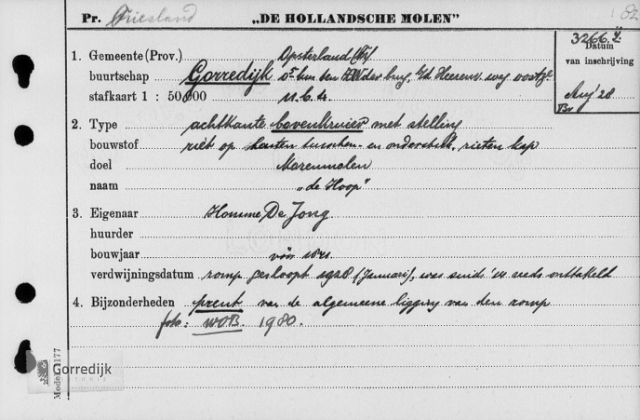 Pr. Friesland
„DE HOLLANDSCHE MOLEN"
182
3266 4
Datum
van inschrijving
Aug '28
1. Gemeente (Prov.) Opsterland (Fr)
buurtschap Gorredijk brug, Heerenv. weg
stafkaart 1 : 50.000 11.C.4.
2. Type achtkante bovenkruier met stelling
bouwstof riet op houten tusschen- en onderstuk, rieten kap
doel Korenmolen
naam „de Hoop"
3. Eigenaar Homme De Jong
huurder
bouwjaar vóór
verwijningsdatum romp gesloopt 1928 (Januari), was sinds reeds onttakeld
4. Bijzonderheden prent van de algemeene ligging van den romp
foto: WOB. 1980.
Model 1177
Gorredijk